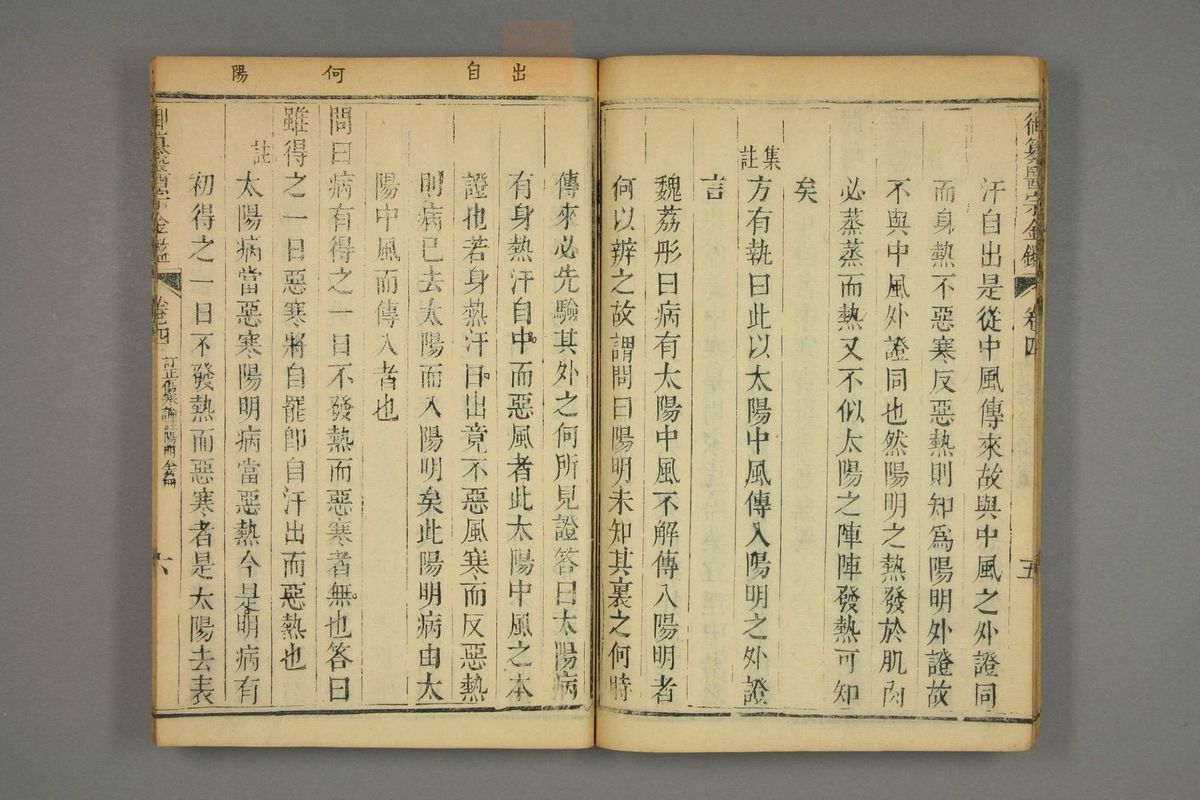 御纂醫宗金鑑 卷四 五
汗自出是從中風傳來故與中風之外證同
而身熱不惡寒反惡熱則知爲陽明外證故
不與中風外證同也然陽明之熱發於肌肉
必蒸蒸而熱又不似太陽之陣陣發熱可知
矣
集註
方有執曰此以太陽中風傳入陽明之外證
言
魏荔彤曰病有太陽中風不解傳入陽明者
何以辨之故謂問曰陽明未知其裏之何時
出 自 何 陽
傳來必先驗其外之何所見證答曰太陽病
有身熱汗自中而惡風者此太陽中風之本
證也若身熱汗日出竟不惡風寒而反惡熱
則病已去太陽而入陽明矣此陽明病由太
陽中風而傳入者也
問曰病有得之一日不發熱而惡寒者無也答曰
雖得之一日惡寒將自罷卽自汗出而惡熱也
註
太陽病當惡寒陽明病當惡熱今是明病有
初得之一日不發熱而惡寒者是太陽去表
御纂醫宗金鑑 卷四 訂正傷寒論註陽明全篇 六